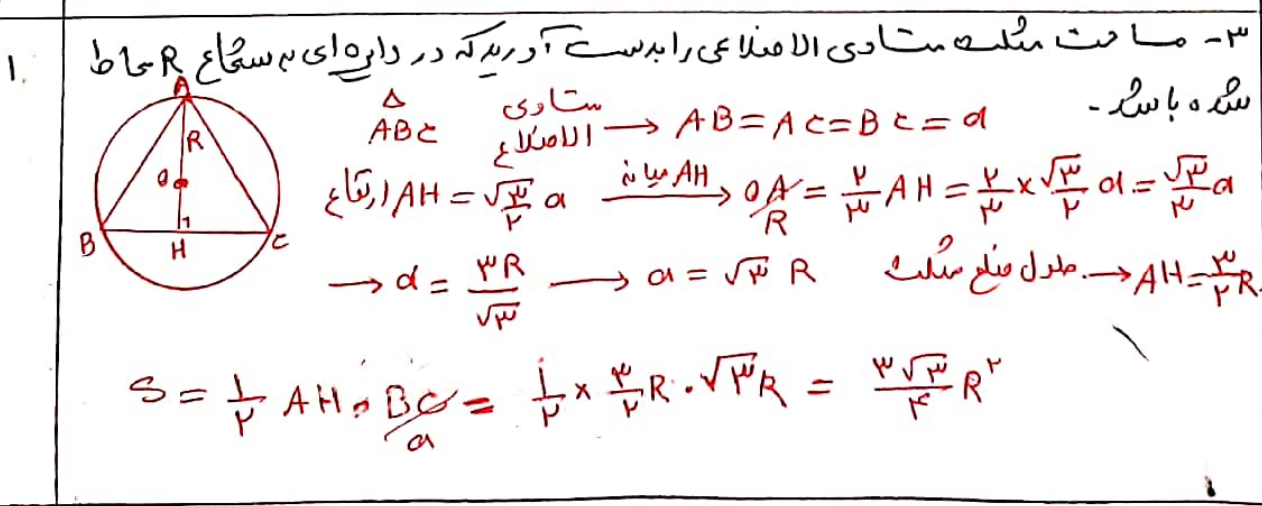 ۳- مساحت مثلث متساوی الاضلاعی را بدست آورید که در دایره ای به شعاع R محاط
شده باشد.
۱
A
R
O
B
H
C
△ABC متساوی الاضلاع → AB = AC = BC = a
ارتفاع AH = √۳/۲ a → AH میانه OA = ۲/۳ AH = ۲/۳ × √۳/۲ a = √۳/۳ a
R
→ a = ۳R/√۳ → a = √۳ R طول ضلع مثلث → AH = ۳/۲ R
S = ۱/۲ AH · BC = ۱/۲ × ۳/۲ R · √۳ R = ۳√۳/۴ R²
a